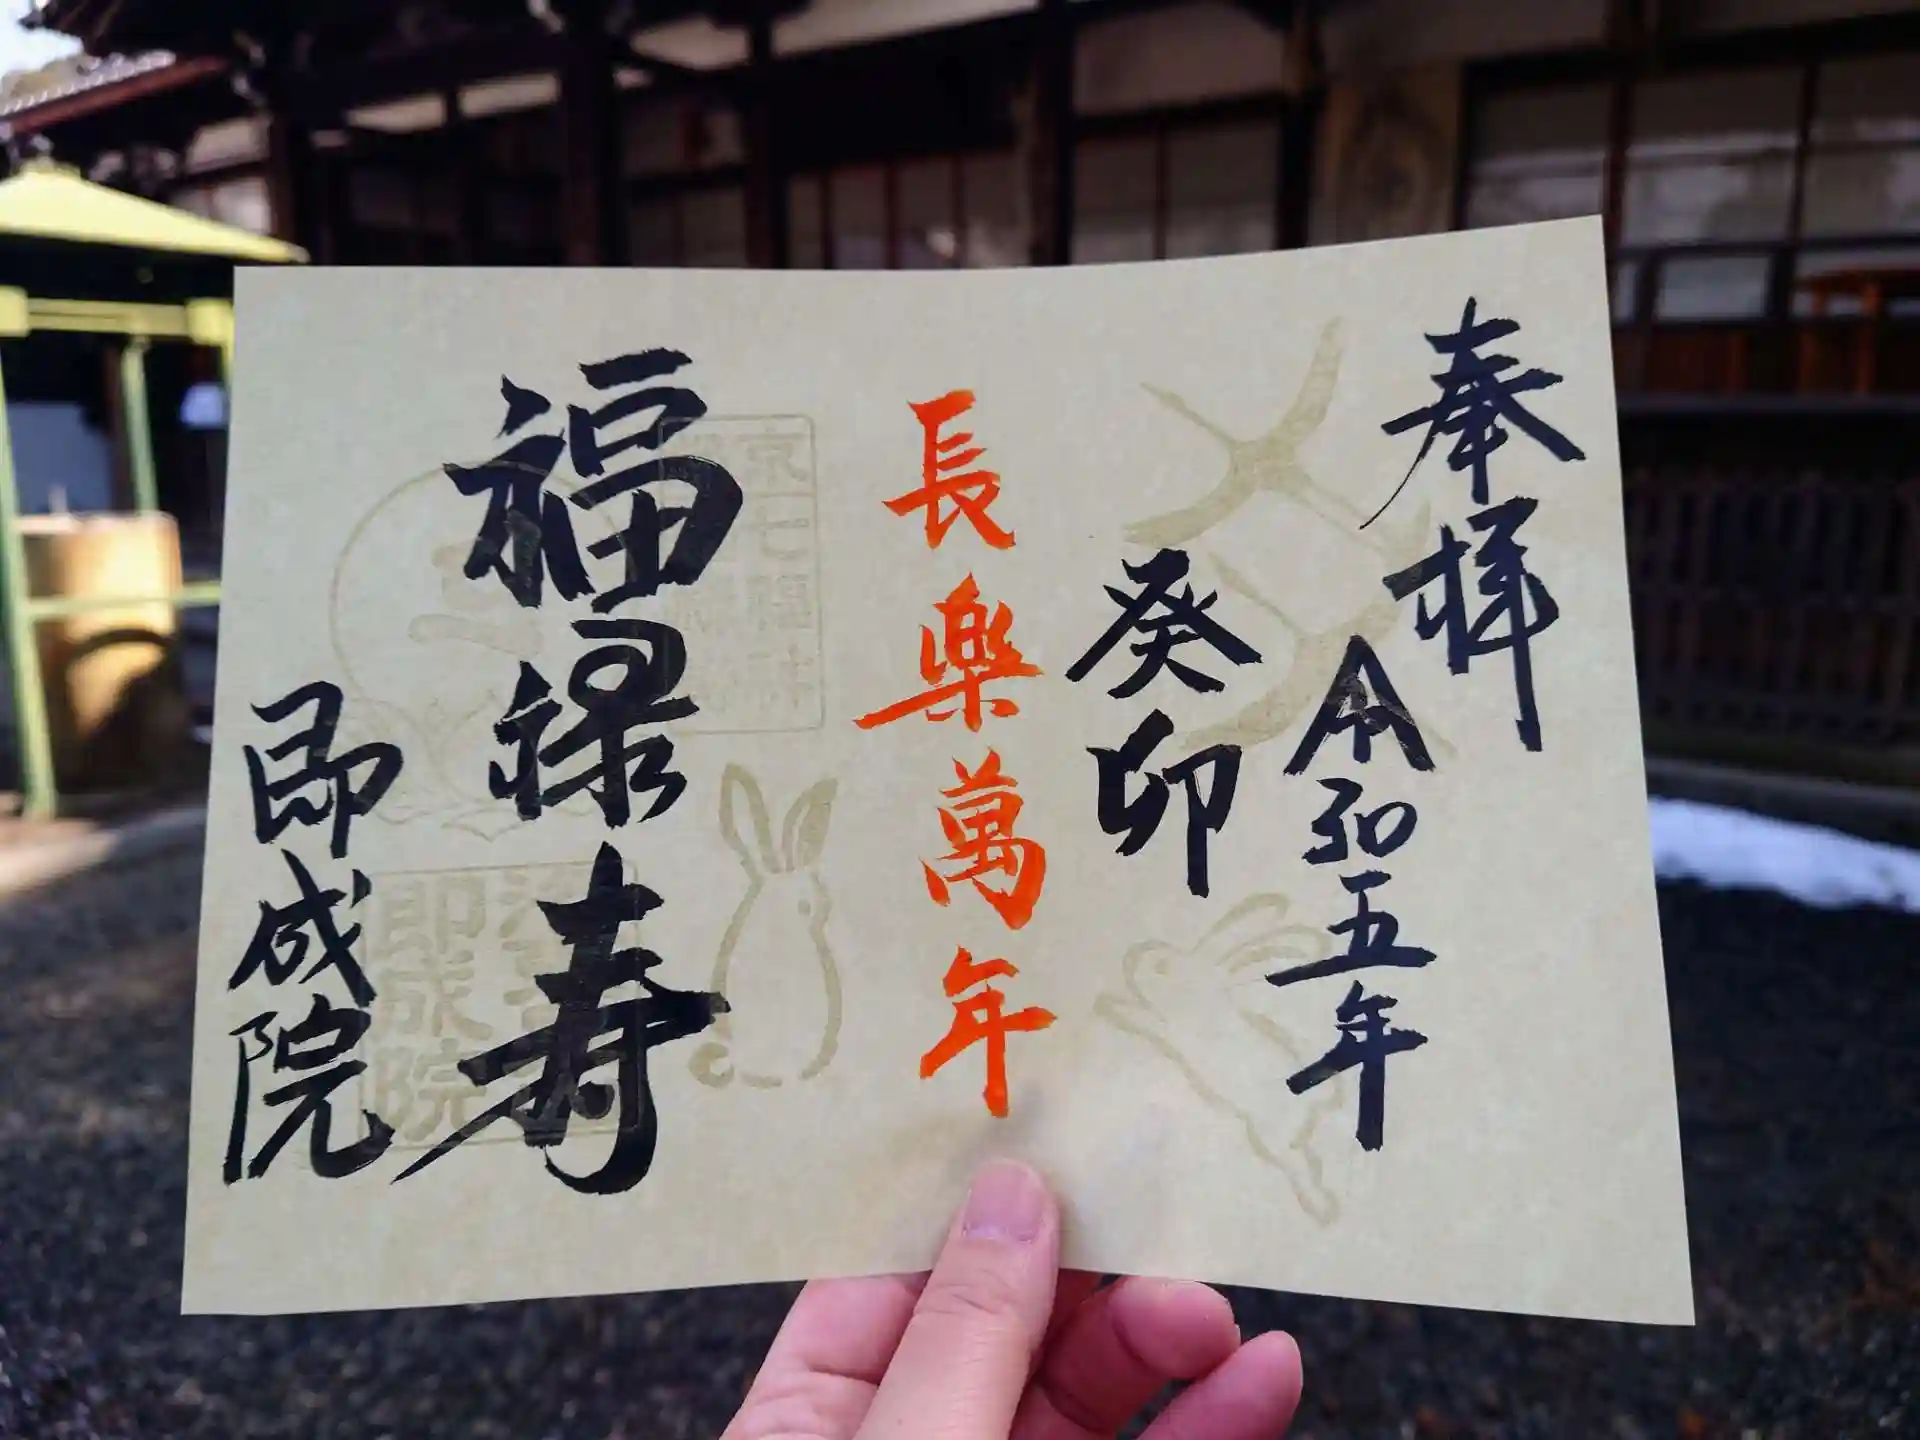 奉拝
令和五年
癸卯
長樂萬年
福禄寿
即成院
京七福神
即成院